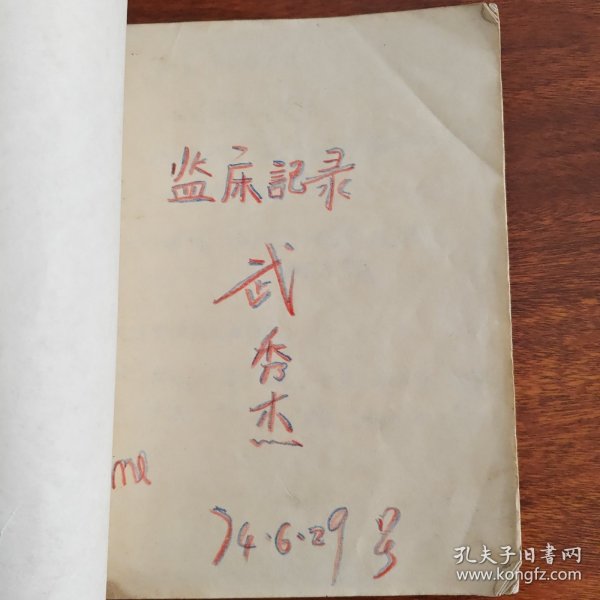 监床記录
武
秀
杰
me
74.6.29号
孔夫子旧书网
www.kongfz.com